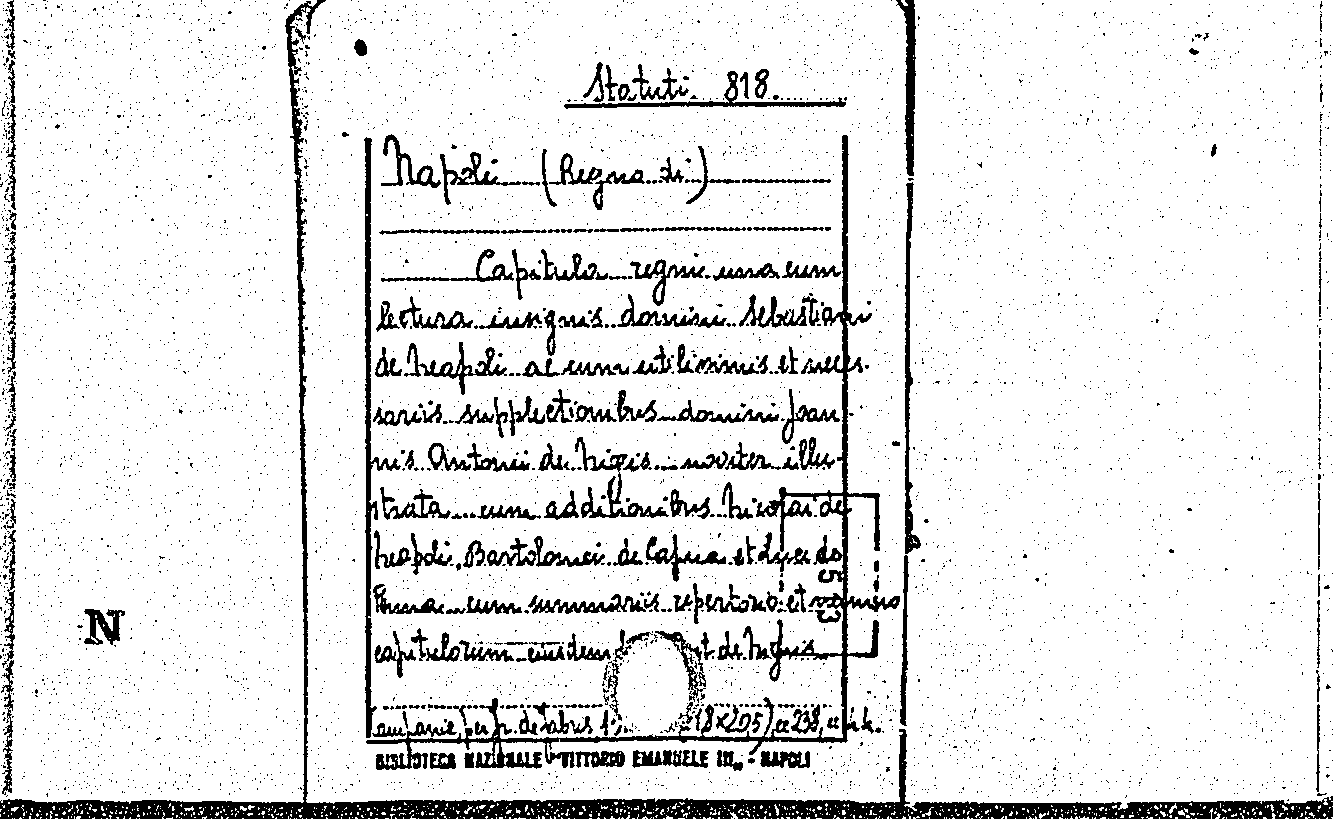 Statuti. 818.
Napoli (Regno di)
Capitula regni una cum
lectura insignis domini Sebastiani
de Neapoli ac cum utilissimis et neces-
sariis suppletionibus domini Joan-
nis Antonii de Nigis noviter illu-
strata cum additionibus Nicolai de
Neapoli, Bartolomei de Capua et Luce de
Penna cum summariis repertorio et numero
capitulorum eiusdem de Nigis
Campanie, per Jo. de Fabris (18×205) cc 238, a
N
53
BIBLIOTECA NAZIONALE "VITTORIO EMANUELE III" - NAPOLI